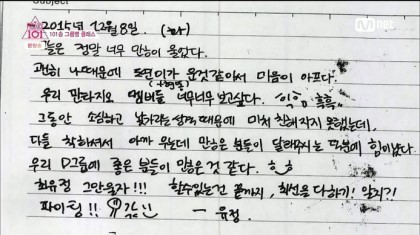 Subject
PRODUCE 101
101송 그룹별 클래스
Mnet
2015년 12월 8일. (화)
오늘은 정말 너무 많이 울었다.
괜히 나때문에 도연이가 운것같아서 마음이 아프다.
우리 판타지오 멤버들 너무너무 보고싶다. 흑흑
그동안 소심하고 낯가리는 성격 때문에 미처 친해지지 못했는데,
다들 착하셔서 아까 우는데 많은 분들이 달래주시는 덕분에 힘이났다.
우리 D그룹에 좋은 분들이 많은 것 같다.
최유정 그만울자!!! 할수있는건 끝까지, 최선을 다하기! 알지?!
파이팅!! — 유정